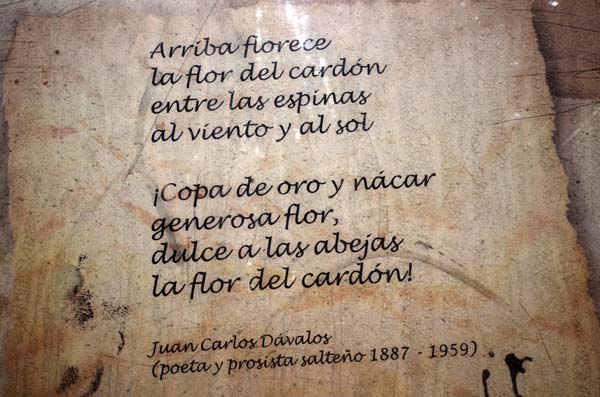 Arriba florece
la flor del cardón
entre las espinas
al viento y al sol
¡Copa de oro y nácar
generosa flor,
dulce a las abejas
la flor del cardón!
Juan Carlos Dávalos
(poeta y prosista salteño 1887 - 1959)